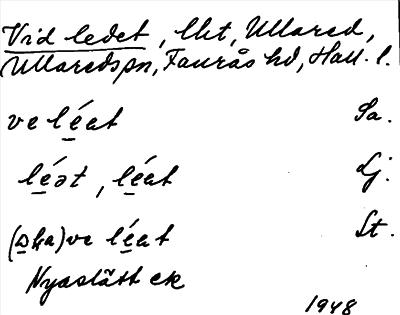 Vid ledet, lht, Ullared,
Ullareds sn, Faurås hd, Hall. l.
ve léat Sa.
léət, léat Lj.
ve léat St.
Nyaslätt ek
1948